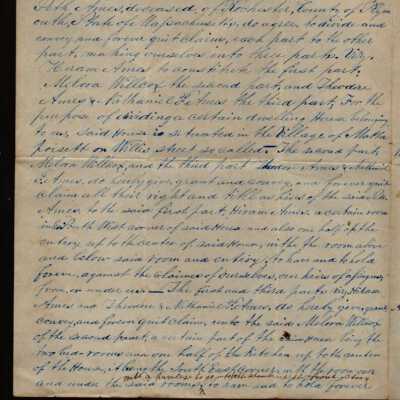 Seth Ames, deceased, of Rochester, County of Plym
outh, State of Massachusetts, do agree to divide and
convey and forever quit claim, each part to the other
part, making ourselves into three parts. Viz,
Hiram Ames to constitute the first part,
Melora Willcox the second part, and Theodore
Ames & Nathaniel F. Ames the third part, For the
purpose of dividing a certain dwelling House belonging
to us, said House is situated in the Village of Matta
poisett on Willis street so called. — The second part,
Melora Willcox, and the third part Theodore Ames & Nathaniel
F. Ames, do hereby give, grant and convey, and forever quit
claim all their right and title as heirs of the said Seth
Ames to the said first part, Hiram Ames a certain room
in the South West corner of said House and also one half of the
entry up to the center of said House, with the room above
and below said room and entry, to have and to hold
forever, against the claims of ourselves, our heirs
from, or under us — The first and third parts, Viz, Hiram
Ames and Theodore & Nathaniel F. Ames, do hereby give, grant
convey, and forever quit claim, unto the said Melora Willcox
of the second part, a certain part of the House being the
two bed-rooms and one half of the kitchen up to the center
of the House, the South East corner, with the room over
and under the said rooms, to have and to hold forever